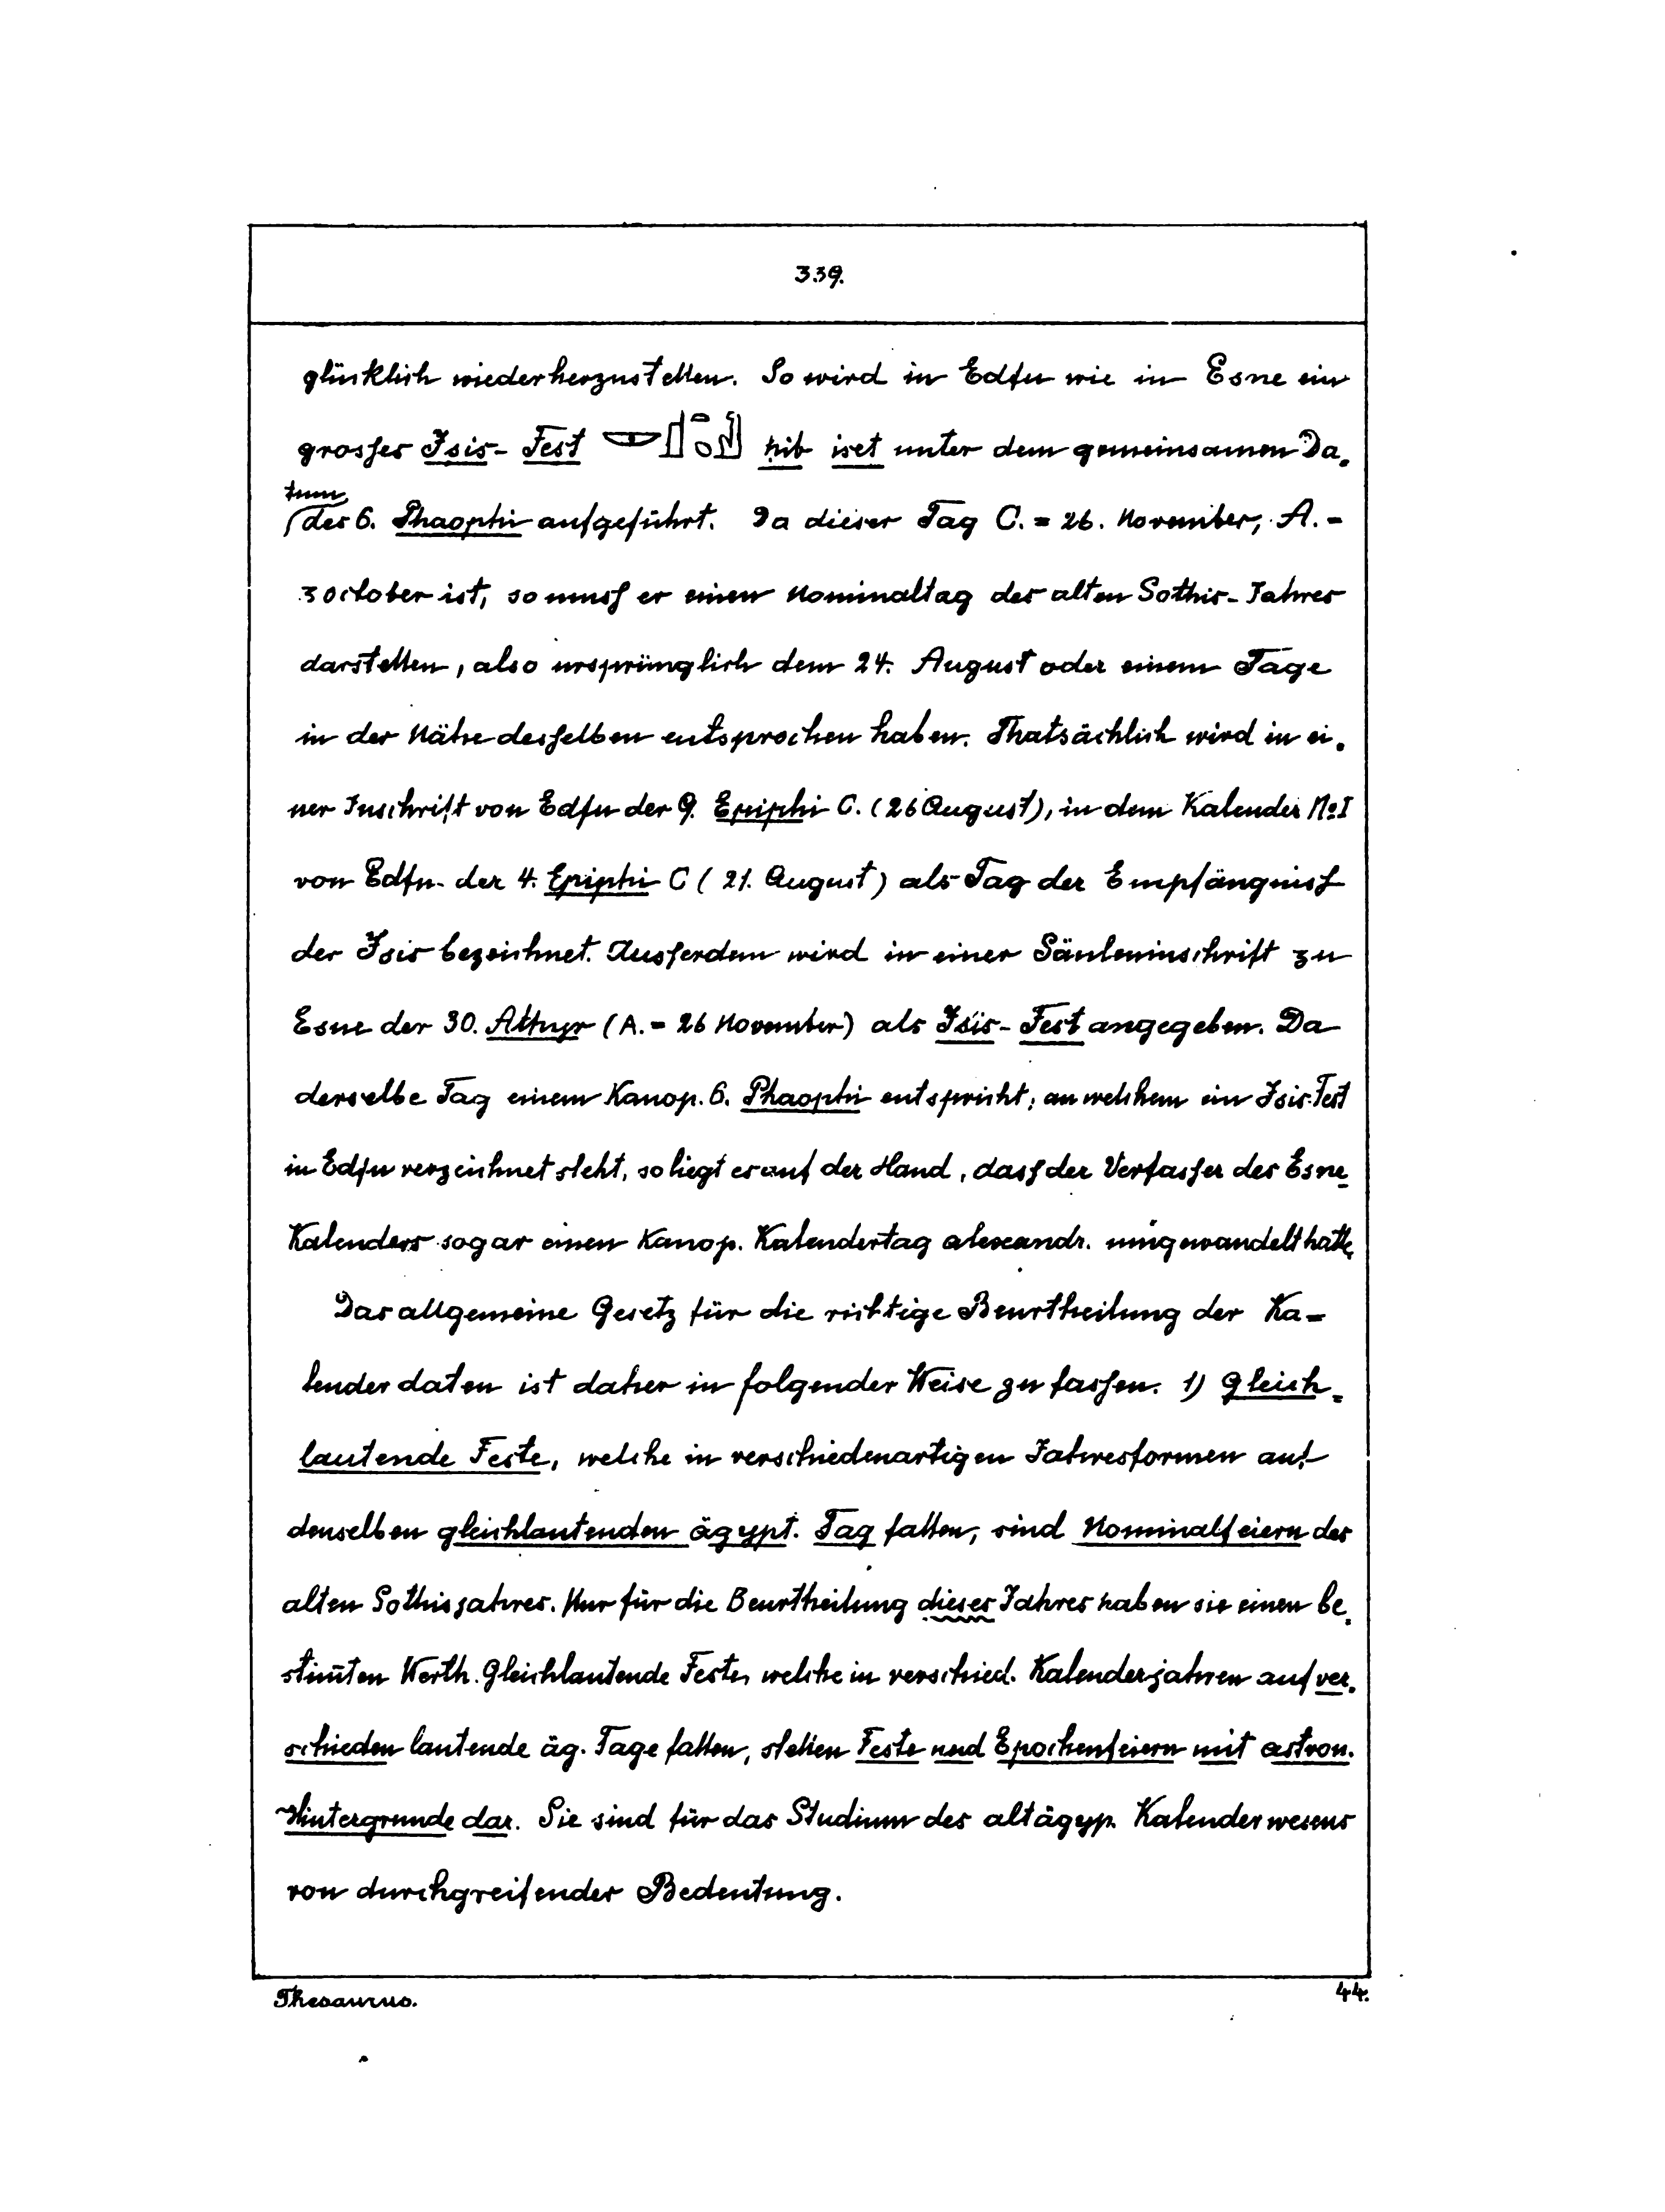 339.
glücklich wiederherzustellen. So wird in Edfu wie in Esne ein
grosses Isis- Fest ḥib iset unter dem gemeinsamen Da-
tum
des 6. Phaophi aufgeführt. Da dieser Tag C. = 26. November, A. =
3 October ist, so muss er einen Nominaltag des alten Sothis-Jahres
darstellen, also ursprünglich dem 24. August oder einem Tage
in der Nähe desselben entsprochen haben. Thatsächlich wird in ei-
ner Inschrift von Edfu der 9. Epiphi C. (26 August), in dem Kalender No I
von Edfu der 4. Epiphi C (21. August) als Tag der Empfängniss
der Isis bezeichnet. Ausserdem wird in einer Säuleninschrift zu
Esne der 30. Athyr (A. = 26 November) als Isis- Fest angegeben. Da
derselbe Tag einem Kanop. 6. Phaophi entspricht, an welchem ein Isis-Fest
in Edfu verzeichnet steht, so liegt es auf der Hand, dass der Verfasser des Esne-
Kalenders sogar einen Kanop. Kalendertag alexandr. umgewandelt hatte.
Das allgemeine Gesetz für die richtige Beurtheilung der Ka=
lenderdaten ist daher in folgender Weise zu fassen. 1) Gleich=
lautende Feste, welche in verschiedenartigen Jahresformen auf
denselben gleichlautenden ägypt. Tag fallen, sind Nominalfeiern des
alten Sothisjahres. Nur für die Beurtheilung dieses Jahres haben sie einen be-
stim̅ten Werth. Gleichlautende Feste, welche in verschied. Kalenderjahren auf ver-
schieden lautende äg. Tage fallen, stellen Feste und Epochenfeiern mit astron.
Hintergrunde dar. Sie sind für das Studium des altägyp. Kalenderwesens
von durchgreifender Bedeutung.
Thesaurus. 44.